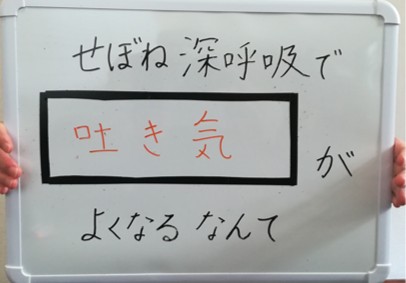 せぼね深呼吸で
吐き気
が
よくなるなんて